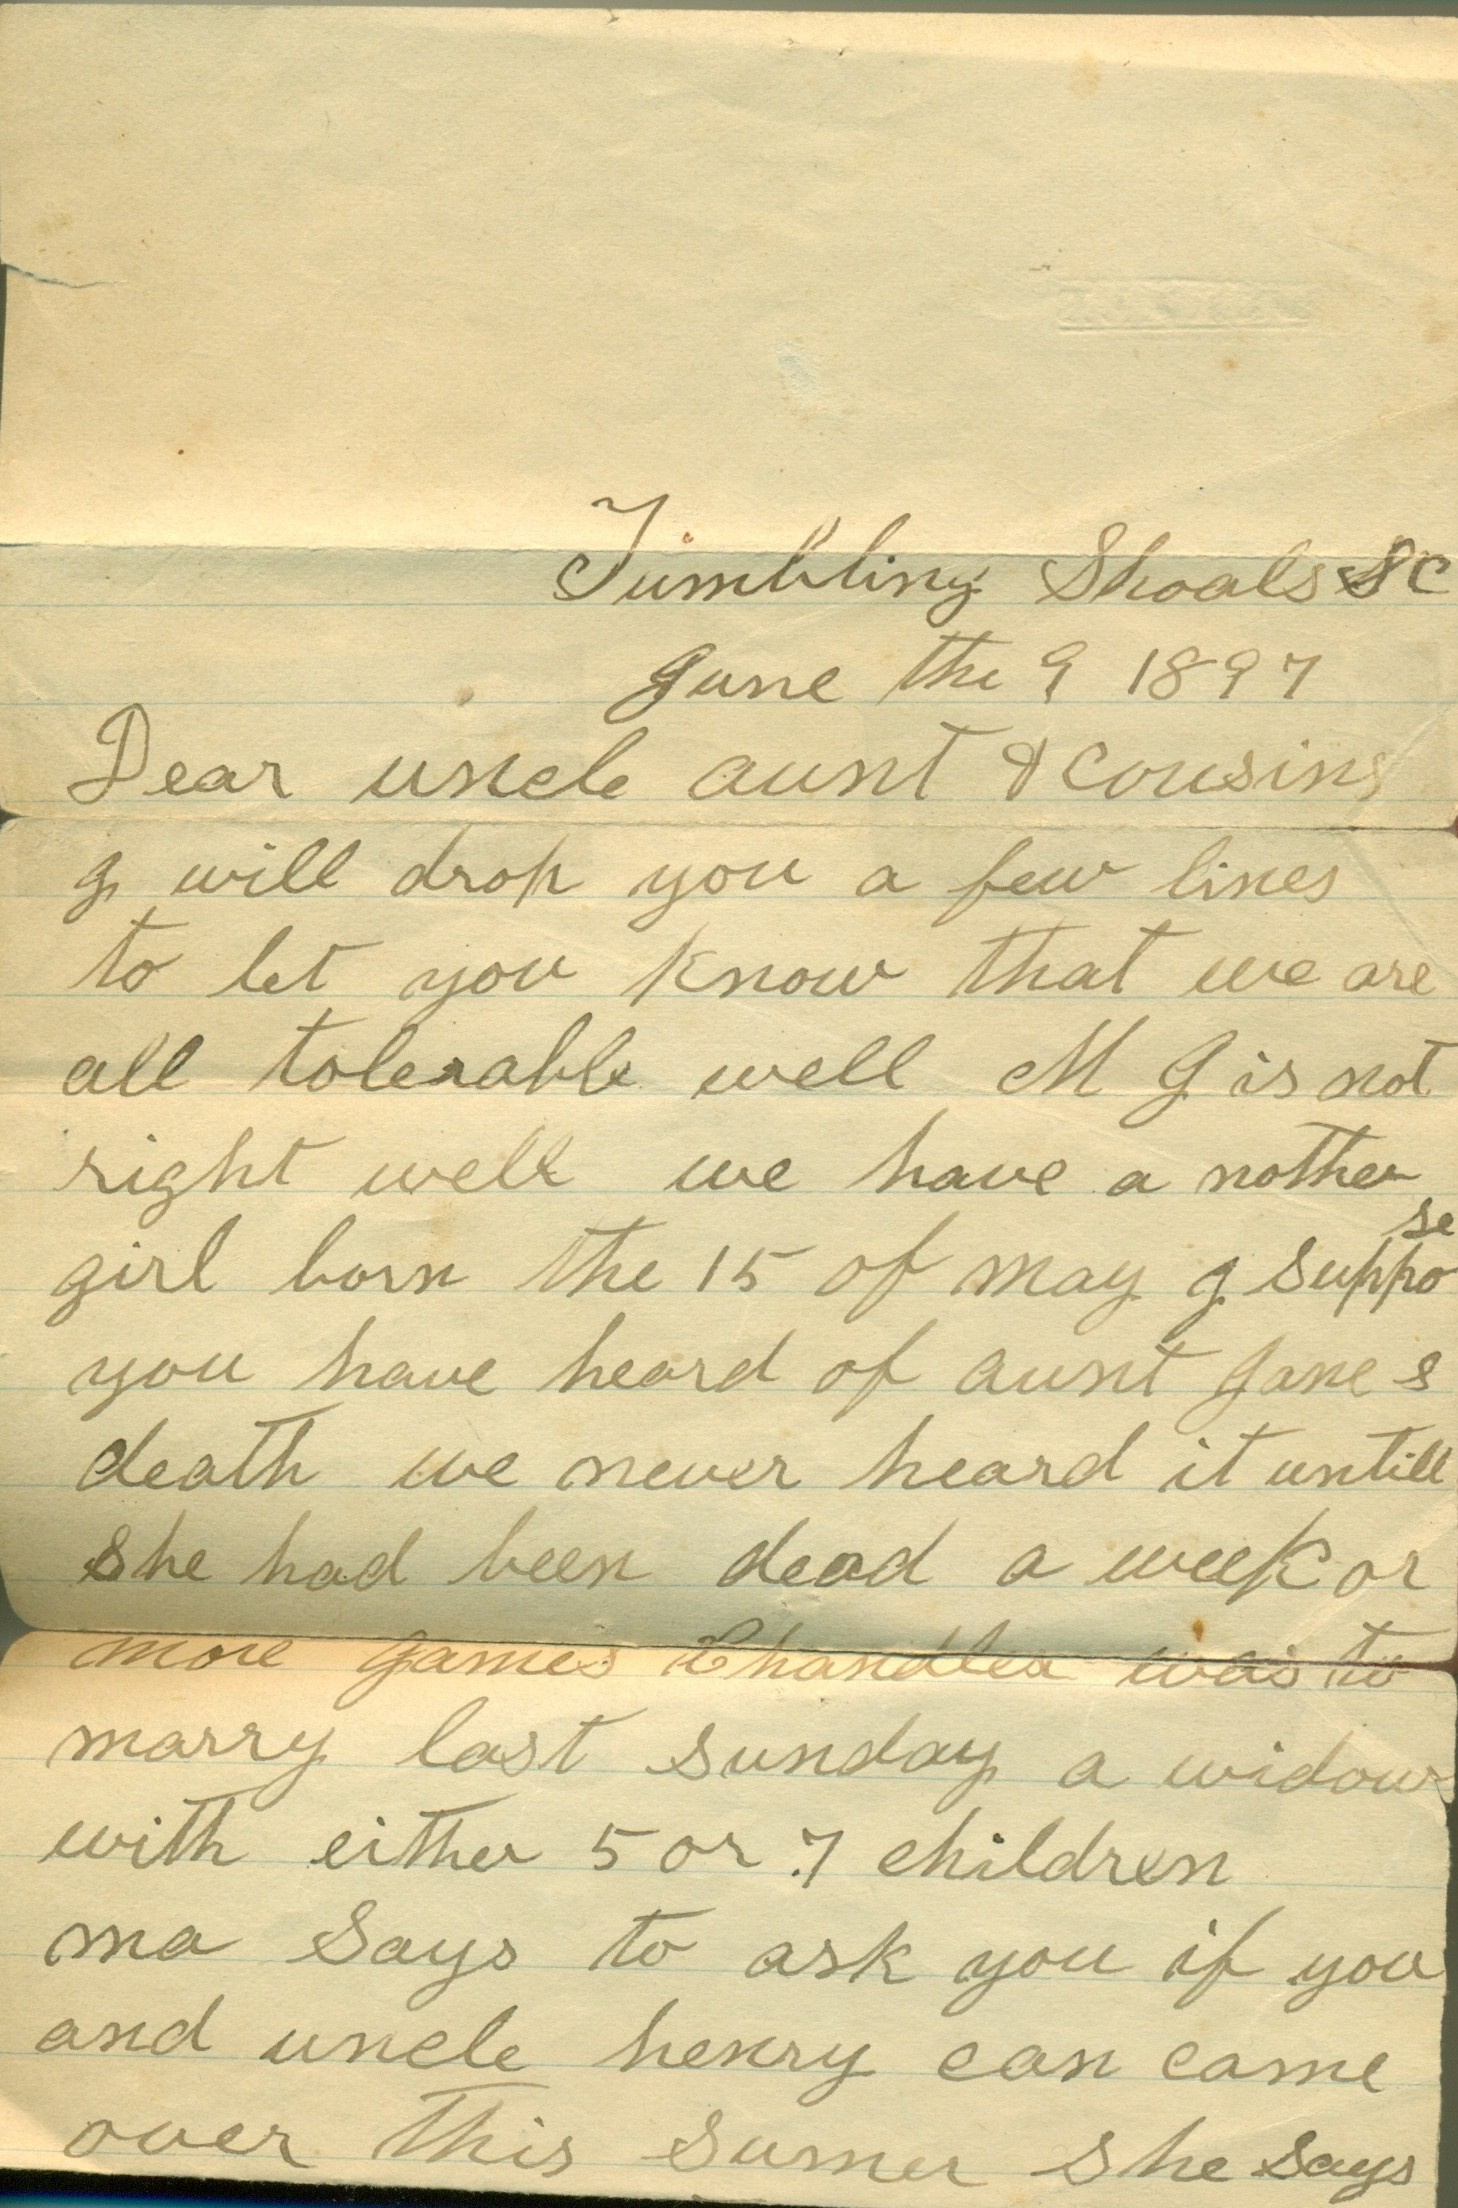 Tumbling Shoals SC
June the 9 1897
Dear uncle aunt & cousins
I will drop you a few lines
to let you know that we are
all tolerable well M J is not
right well we have a nother
girl born the 15 of may I suppose
you have heard of aunt Jane s
death we never heard it untill
she had been dead a week or
more James Chandler was to
marry last sunday a widow
with either 5 or 7 children
ma says to ask you if you
and uncle henry can come
over this sumer she says